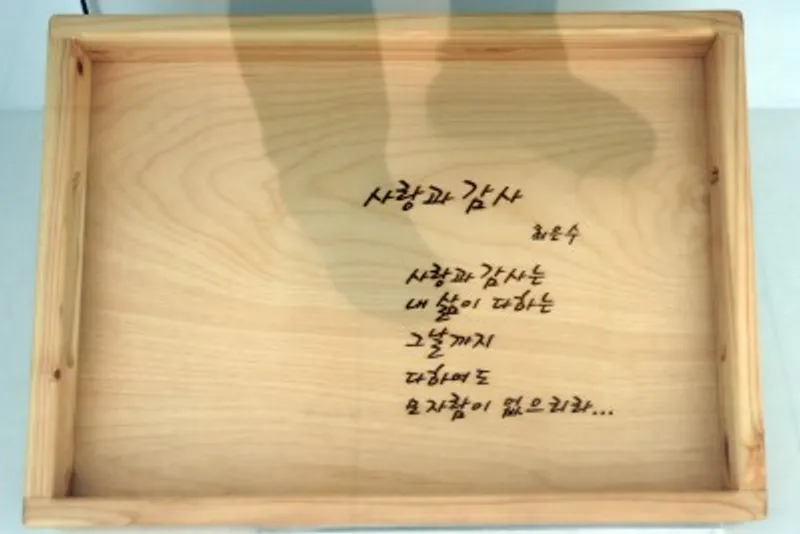 사랑과 감사
최은수
사랑과 감사는
내 삶이 다하는
그날까지
다하여도
모자람이 없으리라...